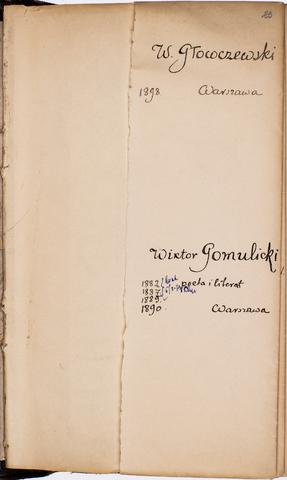 W. Głowczewski
1898 Warszawa
Wiktor Gomulicki,
1882 poeta i literat
1887
1889
1890 Warszawa